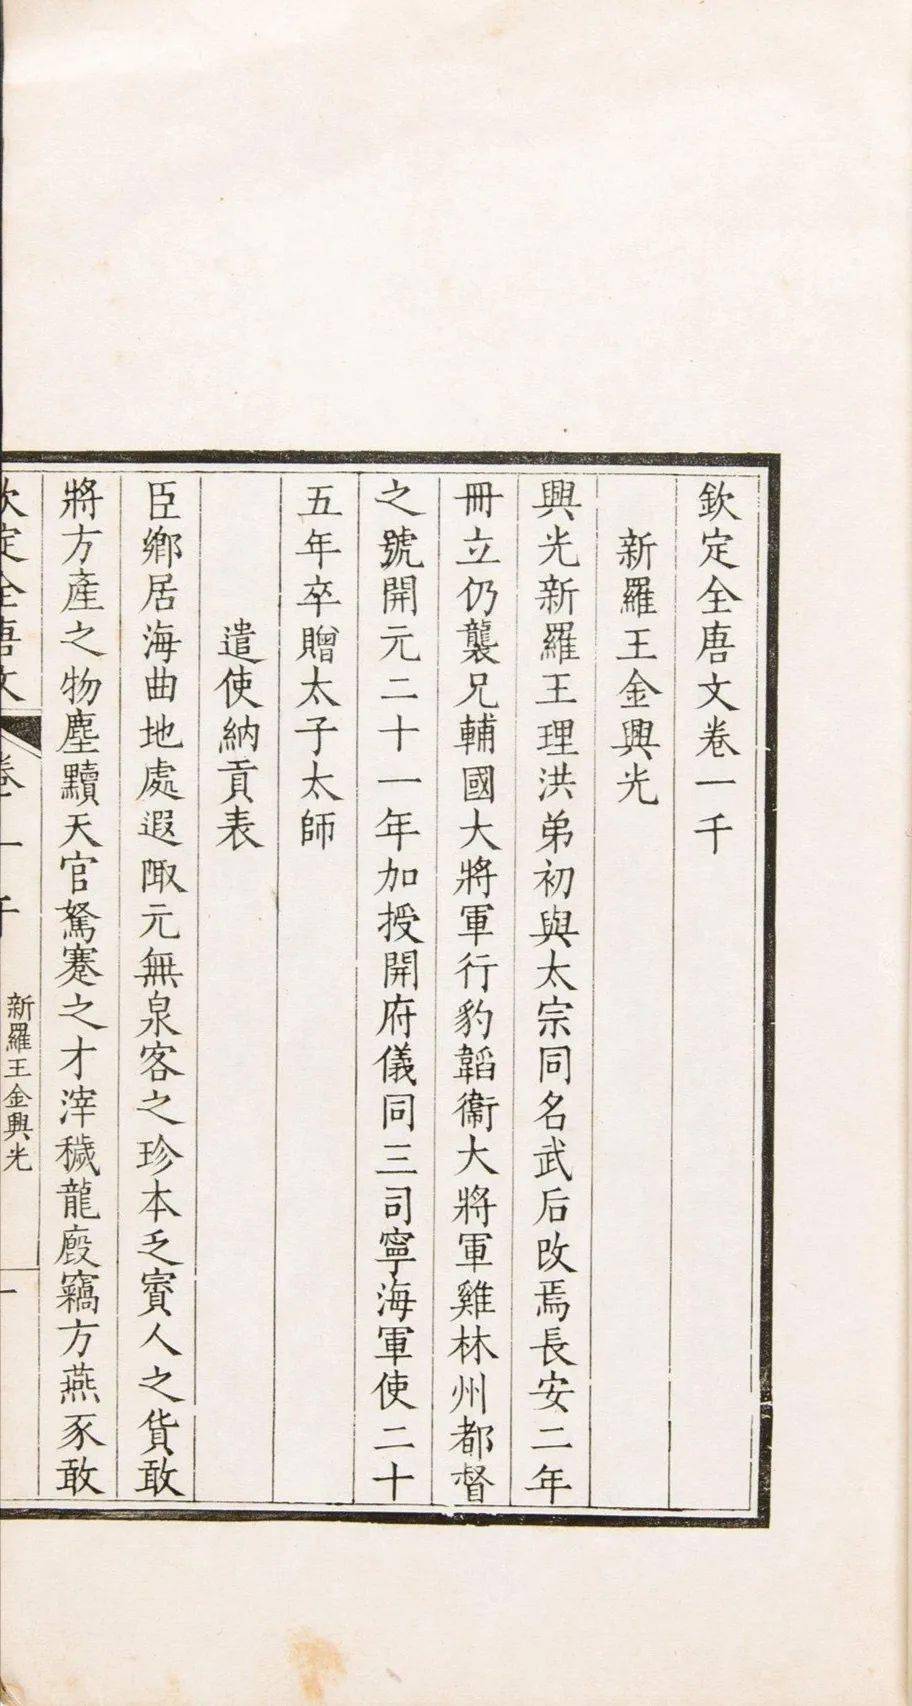 欽定全唐文卷一千
新羅王金興光
興光新羅王理洪弟初與太宗同名武后改焉長安二年
冊立仍襲兄輔國大將軍行豹韜衞大將軍雞林州都督
之號開元二十一年加授開府儀同三司寧海軍使二十
五年卒贈太子太師
遣使納貢表
臣鄉居海曲地處遐陬元無泉客之珍本乏賨人之貨敢
將方產之物塵黷天官駑蹇之才滓穢龍廐竊方燕豕敢
欽定全唐文 卷一千 新羅王金興光 一